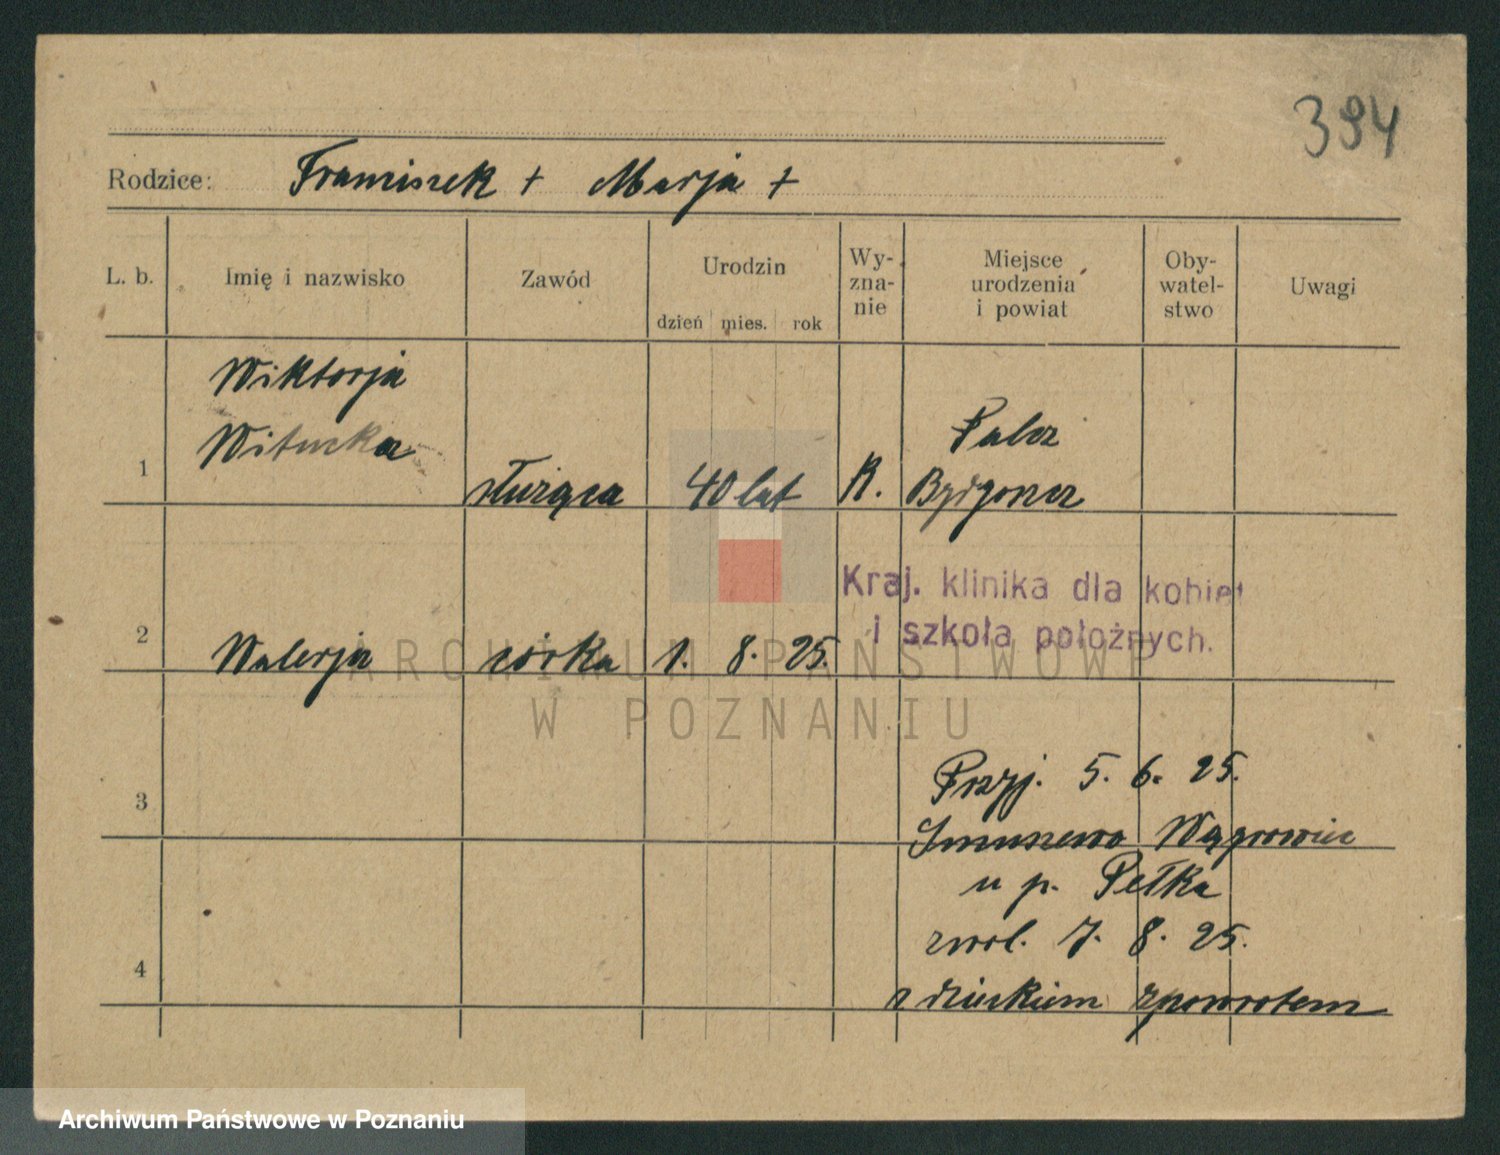 394
Rodzice: Franciszek + Marja +
L. b. Imię i nazwisko Zawód Urodzin dzień mies. rok Wy- zna- nie Miejsce urodzenia i powiat Oby- watel- stwo Uwagi
Wiktorja
Witucka
1 służąca 40 lat R. Palcz
Bydgoszcz
Kraj. klinika dla kobiet
i szkoła położnych.
2 Walerja córka 1. 8. 25.
ARCHIWUM PAŃSTWOWE
W POZNANIU
Przyj. 5. 6. 25.
3 Wągrowiec
u p. Pełka
zwol. 7. 8. 25.
4 z dzieckiem zpowrotem
Archiwum Państwowe w Poznaniu